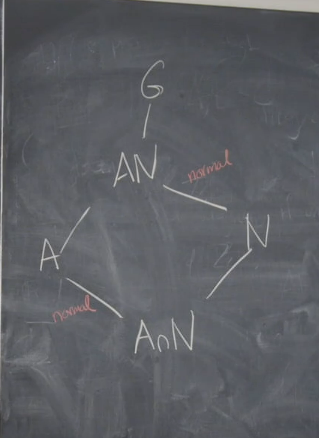 G
AN
normal
N
A
normal
A∩N